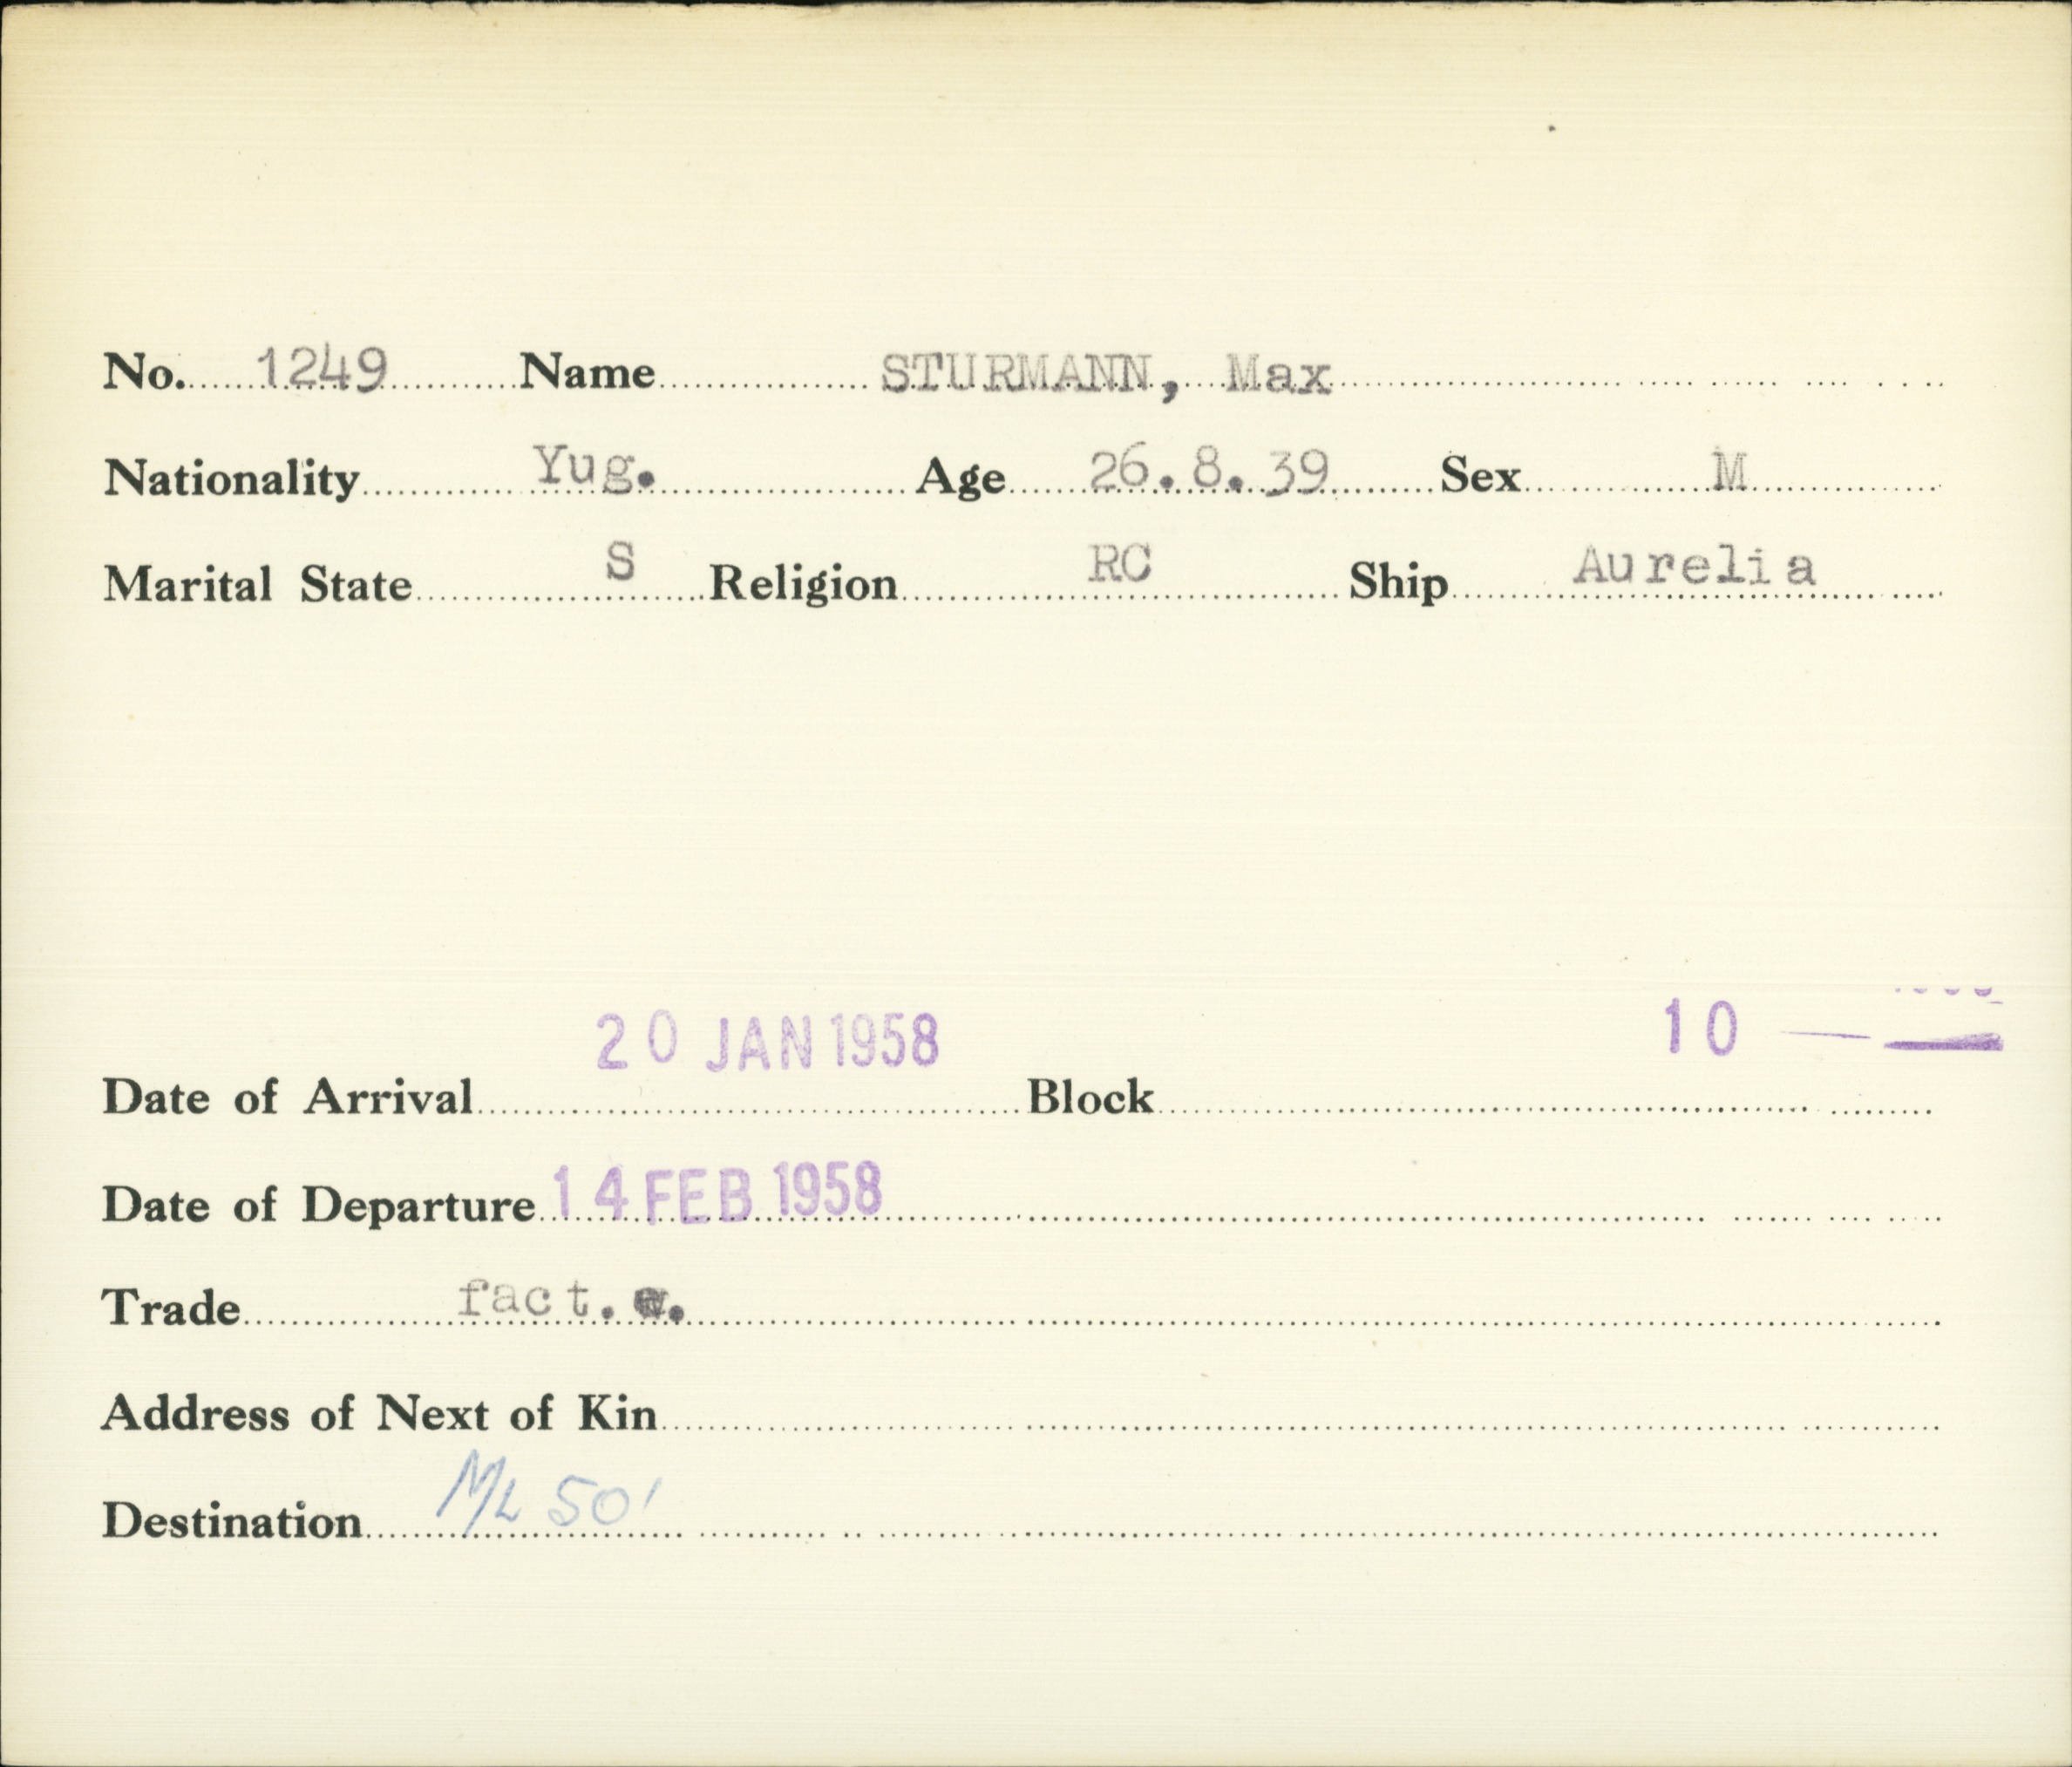 No. 1249 Name STURMANN, Max
Nationality Yug. Age 26.8.39 Sex M
Marital State S Religion RC Ship Aurelia
Date of Arrival 20 JAN 1958 Block 10
Date of Departure 14 FEB 1958
Trade fact. w.
Address of Next of Kin
Destination M/L 50'